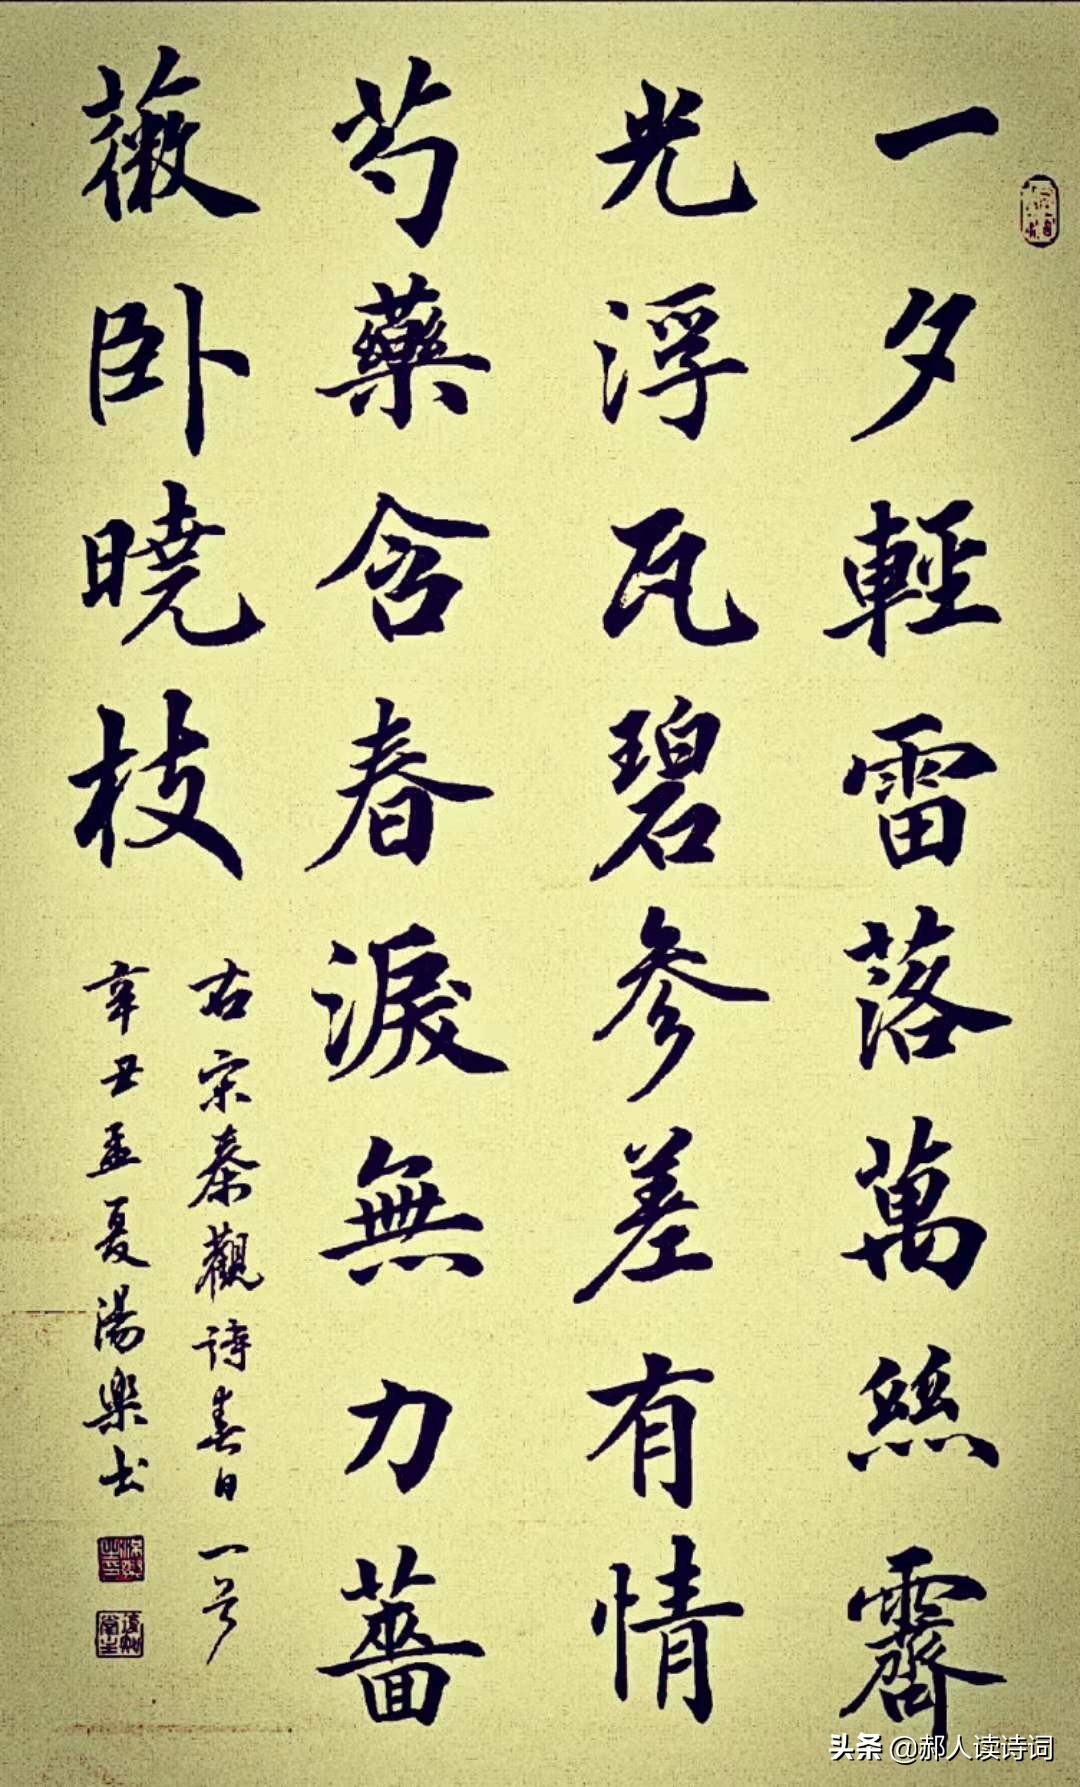 一夕輕雷落萬絲霽
光浮瓦碧参差有情
芍藥含春淚無力薔
薇卧曉枝
右宋秦觀詩春日一首
辛丑孟夏湯樂书
头条 @郝人读诗词